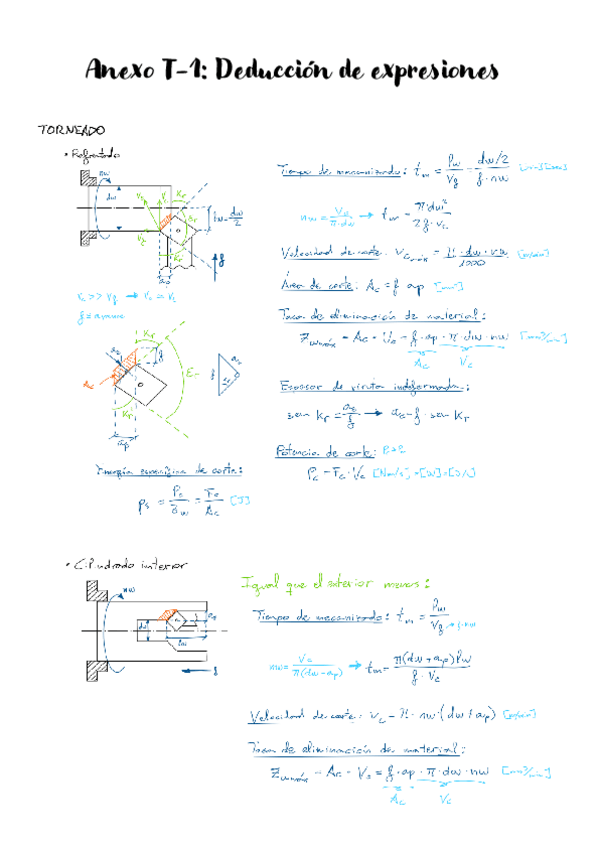 Anexo T-1: Deducción de expresiones
TORNEADO
• Refrentado
Tiempo de mecanizado: t_m = l_w / V_f = (d_w/2) / (f · n_w)
n_w = V_c / (π · d_w) → t_m = π · d_w² / (2 · f · v_c)
Velocidad de corte: V_c máx = π · d_w · n_w / 1000
Área de corte: A_c = f · a_p
Tasa de eliminación de material:
Z_w máx = A_c · V_c = f · a_p · π · d_w · n_w
A_c V_c
Espesor de viruta indeformada:
sen K_r = a_c / f → a_c = f · sen K_r
Potencia de corte:
P_c = F_c · V_c
n_w
d_w
f
a_p
V_c >> V_f → V_e = V_c
f = avance
K_r
a_p
Energía específica de corte:
p_s = P_c / Z_w = F_c / A_c [J]
• Cilindrado interior
n_w
d_w
l_w
f
Igual que el exterior menos:
Tiempo de mecanizado: t_m = l_w / V_f → f · n_w
n_w = V_c / (π(d_w + a_p)) → t_m = π(d_w + a_p) l_w / (f · V_c)
Velocidad de corte: V_c = π · n_w · (d_w + a_p)
Tasa de eliminación de material:
Z_w máx = A_c · V_c = f · a_p · π · d_w · n_w
A_c V_c